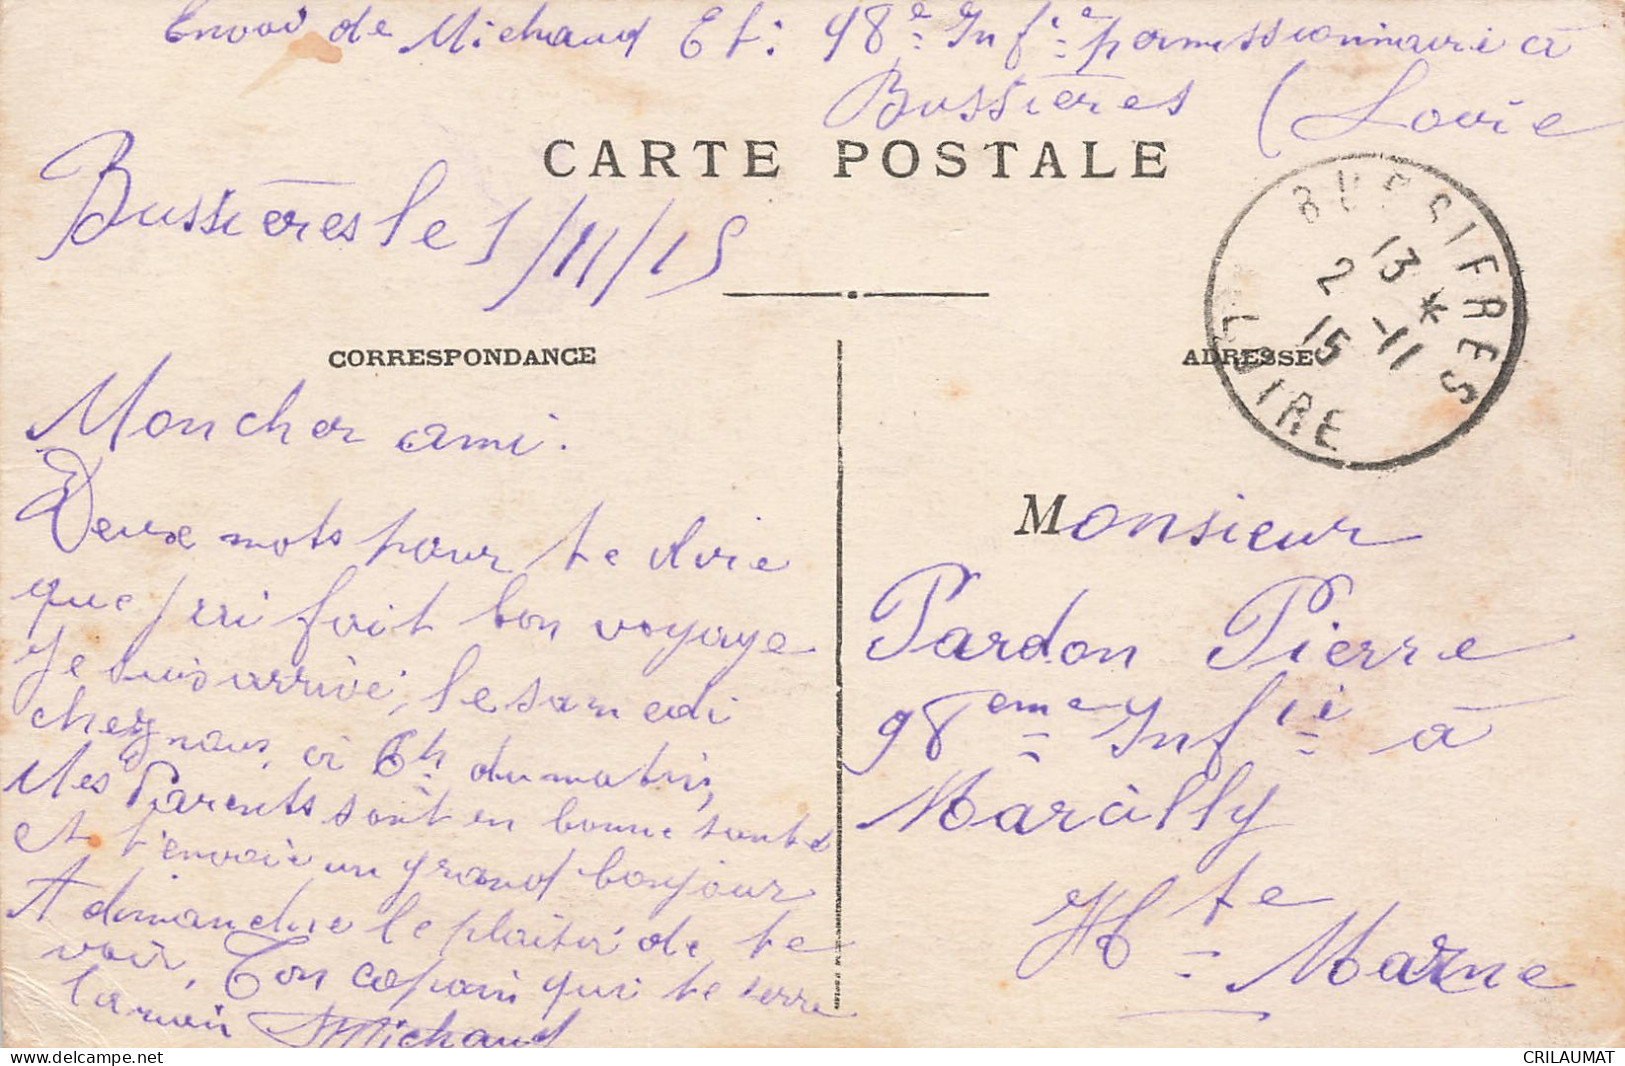 Envoi de Michaud Et: 98e Infie permissionnaire à
Bussières (Loire
CARTE POSTALE
Bussières le 1/11/15
BUSSIERES
13 *
2 -11
15
LOIRE
CORRESPONDANCE
ADRESSE
Mon cher ami.
Deux mots pour te dire
que j'ai fait bon voyage
Je suis arrivé, le samedi
chez nous, à 6h du matin,
Mes Parents sont en bonne santé
et t'envoie un grand bonjour
A dimanche le plaisir de te
voir, Ton copain qui te serre
la main Michaud
Monsieur
Pardon Pierre
98eme Infie à
Marcilly
Hte Marne
CRILAUMAT